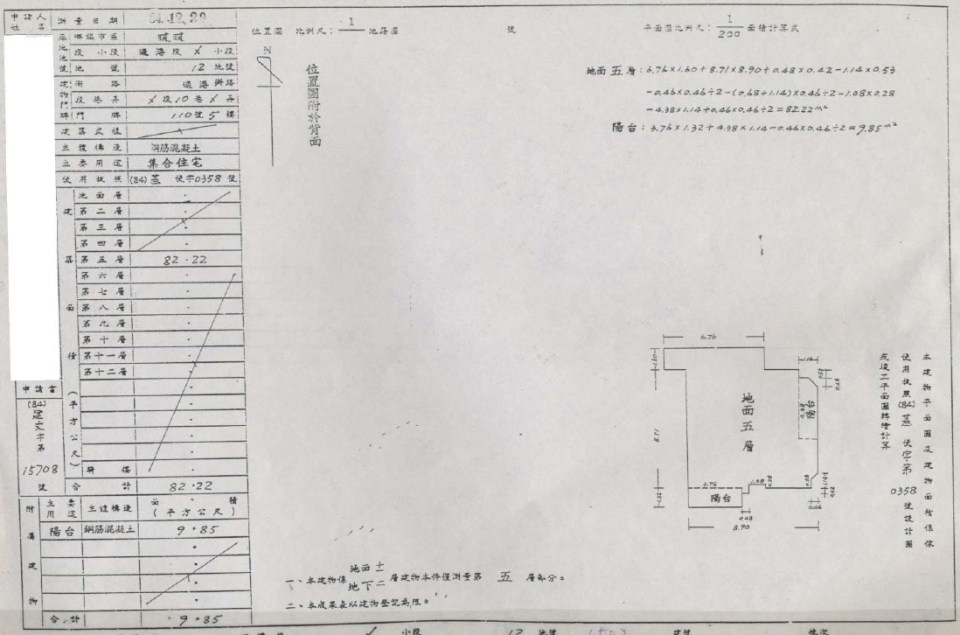 申請人
姓名
測量日期 84.12.20
鄉鎮市區 暖暖
段 小段 過港段 小段
地號 12地號
街路 過港街路
段巷弄 段10巷 弄
門牌 110號5樓
建築式樣
主體構造 鋼筋混凝土
主要用途 集合住宅
使用執照 (84)基 使字0358號
建築面積(平方公尺)
地面層
第二層
第三層
第四層
第五層 82.22
第六層
第七層
第八層
第九層
第十層
第十一層
第十二層
騎樓
合計 82.22
申請書
(84)
字第
15708
號
附屬建物
主要用途 主體構造 面積(平方公尺)
陽台 鋼筋混凝土 9.85
合計 9.85
位置圖 比例尺:1/ 地籍圖 號
N
位置圖附於背面
平面圖比例尺:1/200 面積計算式
地面五層:6.76×1.60+8.71×8.90+0.48×0.42-1.14×0.53
-0.46×0.46÷2-(0.68+1.14)×0.46÷2-1.08×0.28
-4.38×1.14+0.46×0.46÷2=82.22m²
陽台:3.76×1.32+4.38×1.14-0.46×0.46÷2=9.85m²
6.76
1.60
1.14
地面五層
陽台
8.71
3.76
1.08
1.32
陽台
0.48
8.90
本建物平面圖及建物面積係依
使用執照(84)基 使字第0358號設計圖
或竣工平面圖轉繪計算
一、本建物係地面十 地下二層建物本件僅測量第 五 層部分。
二、本成果表以建物登記為限。
小段 12 地號 建號 棟次